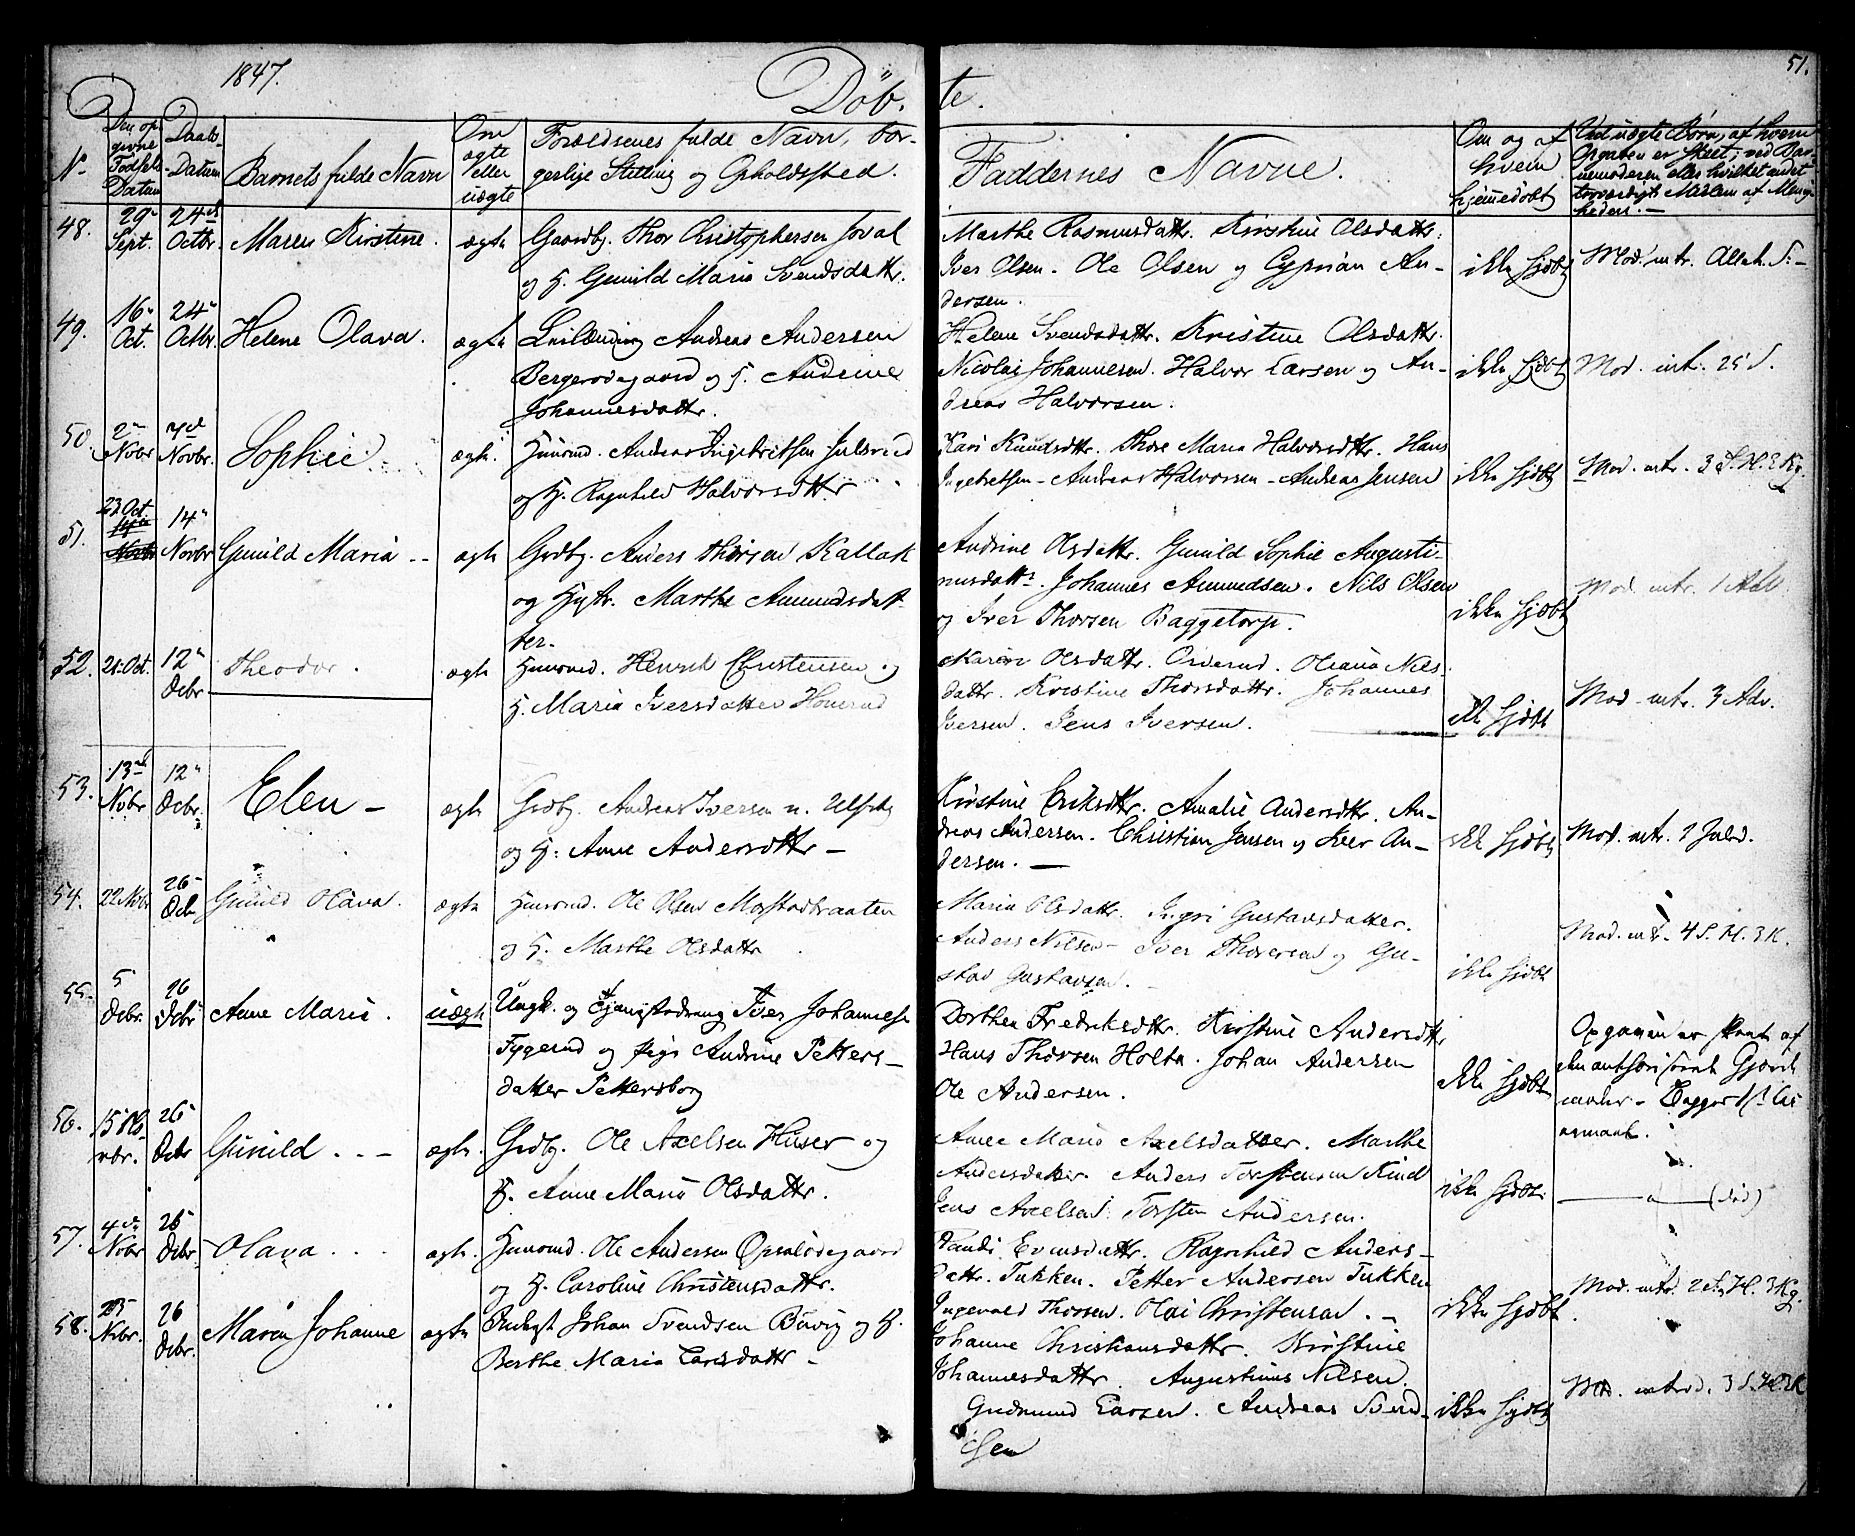 1847.
Döb-
te.
51.
N.
Den op-
givne
Fødsels
Datum
Daabs-
Datum
Barnets fulde Navn
Om
ægte
eller
uægte
Forældrenes fulde Navn, bor-
gerlige Stilling og Opholdssted.
Faddernes Navne.
Om og af
hvem
hjemmedöbt
Ved uægte Børn, af hvem
Opgaven er skeet, ved Bar-
nemoderen eller hvilket andet
troværdigt Medlem af Menig-
heden. -
48.
29
Sept.
24de
Octbr.
Maren Kirstine.
ægte
Gaardbr. Thor Christophersen Joval
og H. Gunild Maria Svendsdattr.
Marthe Rasmusdattr. Kirstine Olsdattr.
Iver Olsen. Ole Olsen og Cyprian An-
dersen.
ikke Hjdbt
Mod. intr. Alleh. S. -
49.
16
Oct.
24
Octbr.
Helene Olava.
ægte
Andreas Andersen
Bergerødegaard og H. Andrine
Johannesdattr.
Helene Svendsdattr. Kristine Olsdattr.
Nicolaj Johannesen. Halvor Larsen og An-
dreas Halvorsen.
ikke Hjdbt
Mod. intr. 25 S.
50.
2
Novbr
7d
Novbr.
Sophie
ægte.
Huusmd. Andreas Ingebritsen Julsrud
og H. Ragnhild Halvorsdttr
Kari Knudsdttr. Thore Maria Halvorsdttr. Hans
Ingebretsen - Andreas Halvorsen - Andreas Jensen
ikke Hjdbt
Mod. intr. 3 S. H. 3 Kg.
51.
23 Oct.
14
Novbr
14
Novbr
Gunild Maria - -
ægte
Grdbr. Anders Thorsen Kallak
og Hustr. Marthe Amundsdat-
ter.
Andrine Olsdattr. Gunild Sophie Augusti-
nusdattr. Johannes Amundsen. Nils Olsen
og Iver Thorsen Baggetorp.
ikke Hjdbt
Mod. intr. 1 Adv.
52.
21 Oct.
12
Debr
Theodor.
ægte
Huusmd. Henrik Christensen og
H. Maria Iversdatter Honerud
Karen Olsdattr. Oiderud. Oliana Nils-
dattr. Kristine Thorsdattr. Johannes
Iversen. Jens Iversen.
ikke Hjdbt
Mod. intr. 3 Adv.
53.
13de
Nvbr
12
Debr.
Elen -
ægte
Grdbr. Andreas Iversen n. Ulsby
og H. Anne Andersdttr -
Kirstine Eriksdttr. Amalie Andersdttr. An-
dreas Andersen. Christian Jensen og Iver An-
dersen. -
ikke Hjdbt
Mod. intr. 2 Juled.
54.
22 Nvbr
26
Debr
Gunild Olava.
ægte
Huusmd. Ole Olsen Morstadbraaten
og H. Marthe Olsdattr
Maria Olsdattr. Ingri Gustavsdatter.
Anders Nilsen - Iver Thoresen og Gu-
stav Gustavsen. -
ikke Hjdbt
Mod. intr. 4 S. H. 3 K.
55.
5
Debr.
26
Debr
Anne Maria.
uægte
Ungk. og Tjenestedreng Iver Johannesen
Tyggerud og Pige Andrine Petters-
datter Pettersborg
Dorthea Fredriksdttr. Kirstine Andersdttr
Hans Thorsen Holta. Johan Andersen
Ole Andersen.
ikke Hjdbt
Opgaven er skeet af
den authoriserede Gjord-
moder -
56.
15 No-
vbr.
26
Debr
Gunild . . -
ægte.
Grdbr. Ole Axelsen Huser og
H. Anne Maria Olsdattr.
Anne Maria Axelsdatter. Marthe
Andersdatter. Anders Torstensen Kind
Jens Axelsen. Torsten Andersen.
ikke Hjdbt.
(död)
57.
4de
Nvbr
26
Debr
Olava . . .
ægte.
Huusmd. Ole Andersen Opsalødegaard
og H. Caroline Christensdattr.
Randi Evensdattr. Ragnhild Anders-
dattr. Tukken. Petter Andersen Tukken
Ingevald Thorsen. Olai Christensen. -
ikke Hjdbt.
Mod. intr. 2 S. H. 3 Kg.
58.
25
Nvbr.
26
Debr.
Maren Johanne
ægte
Johan Svendsen Buvig og H.
Berthe Maria Larsdattr -
Johanne Christiansdattr. Kirstine
Johannesdattr. Augustinus Nilsen.
Gudmund Larsen. Andreas Svend-
sen
ikke Hjdbt
Mod. introd. 3 S. H. 3 K